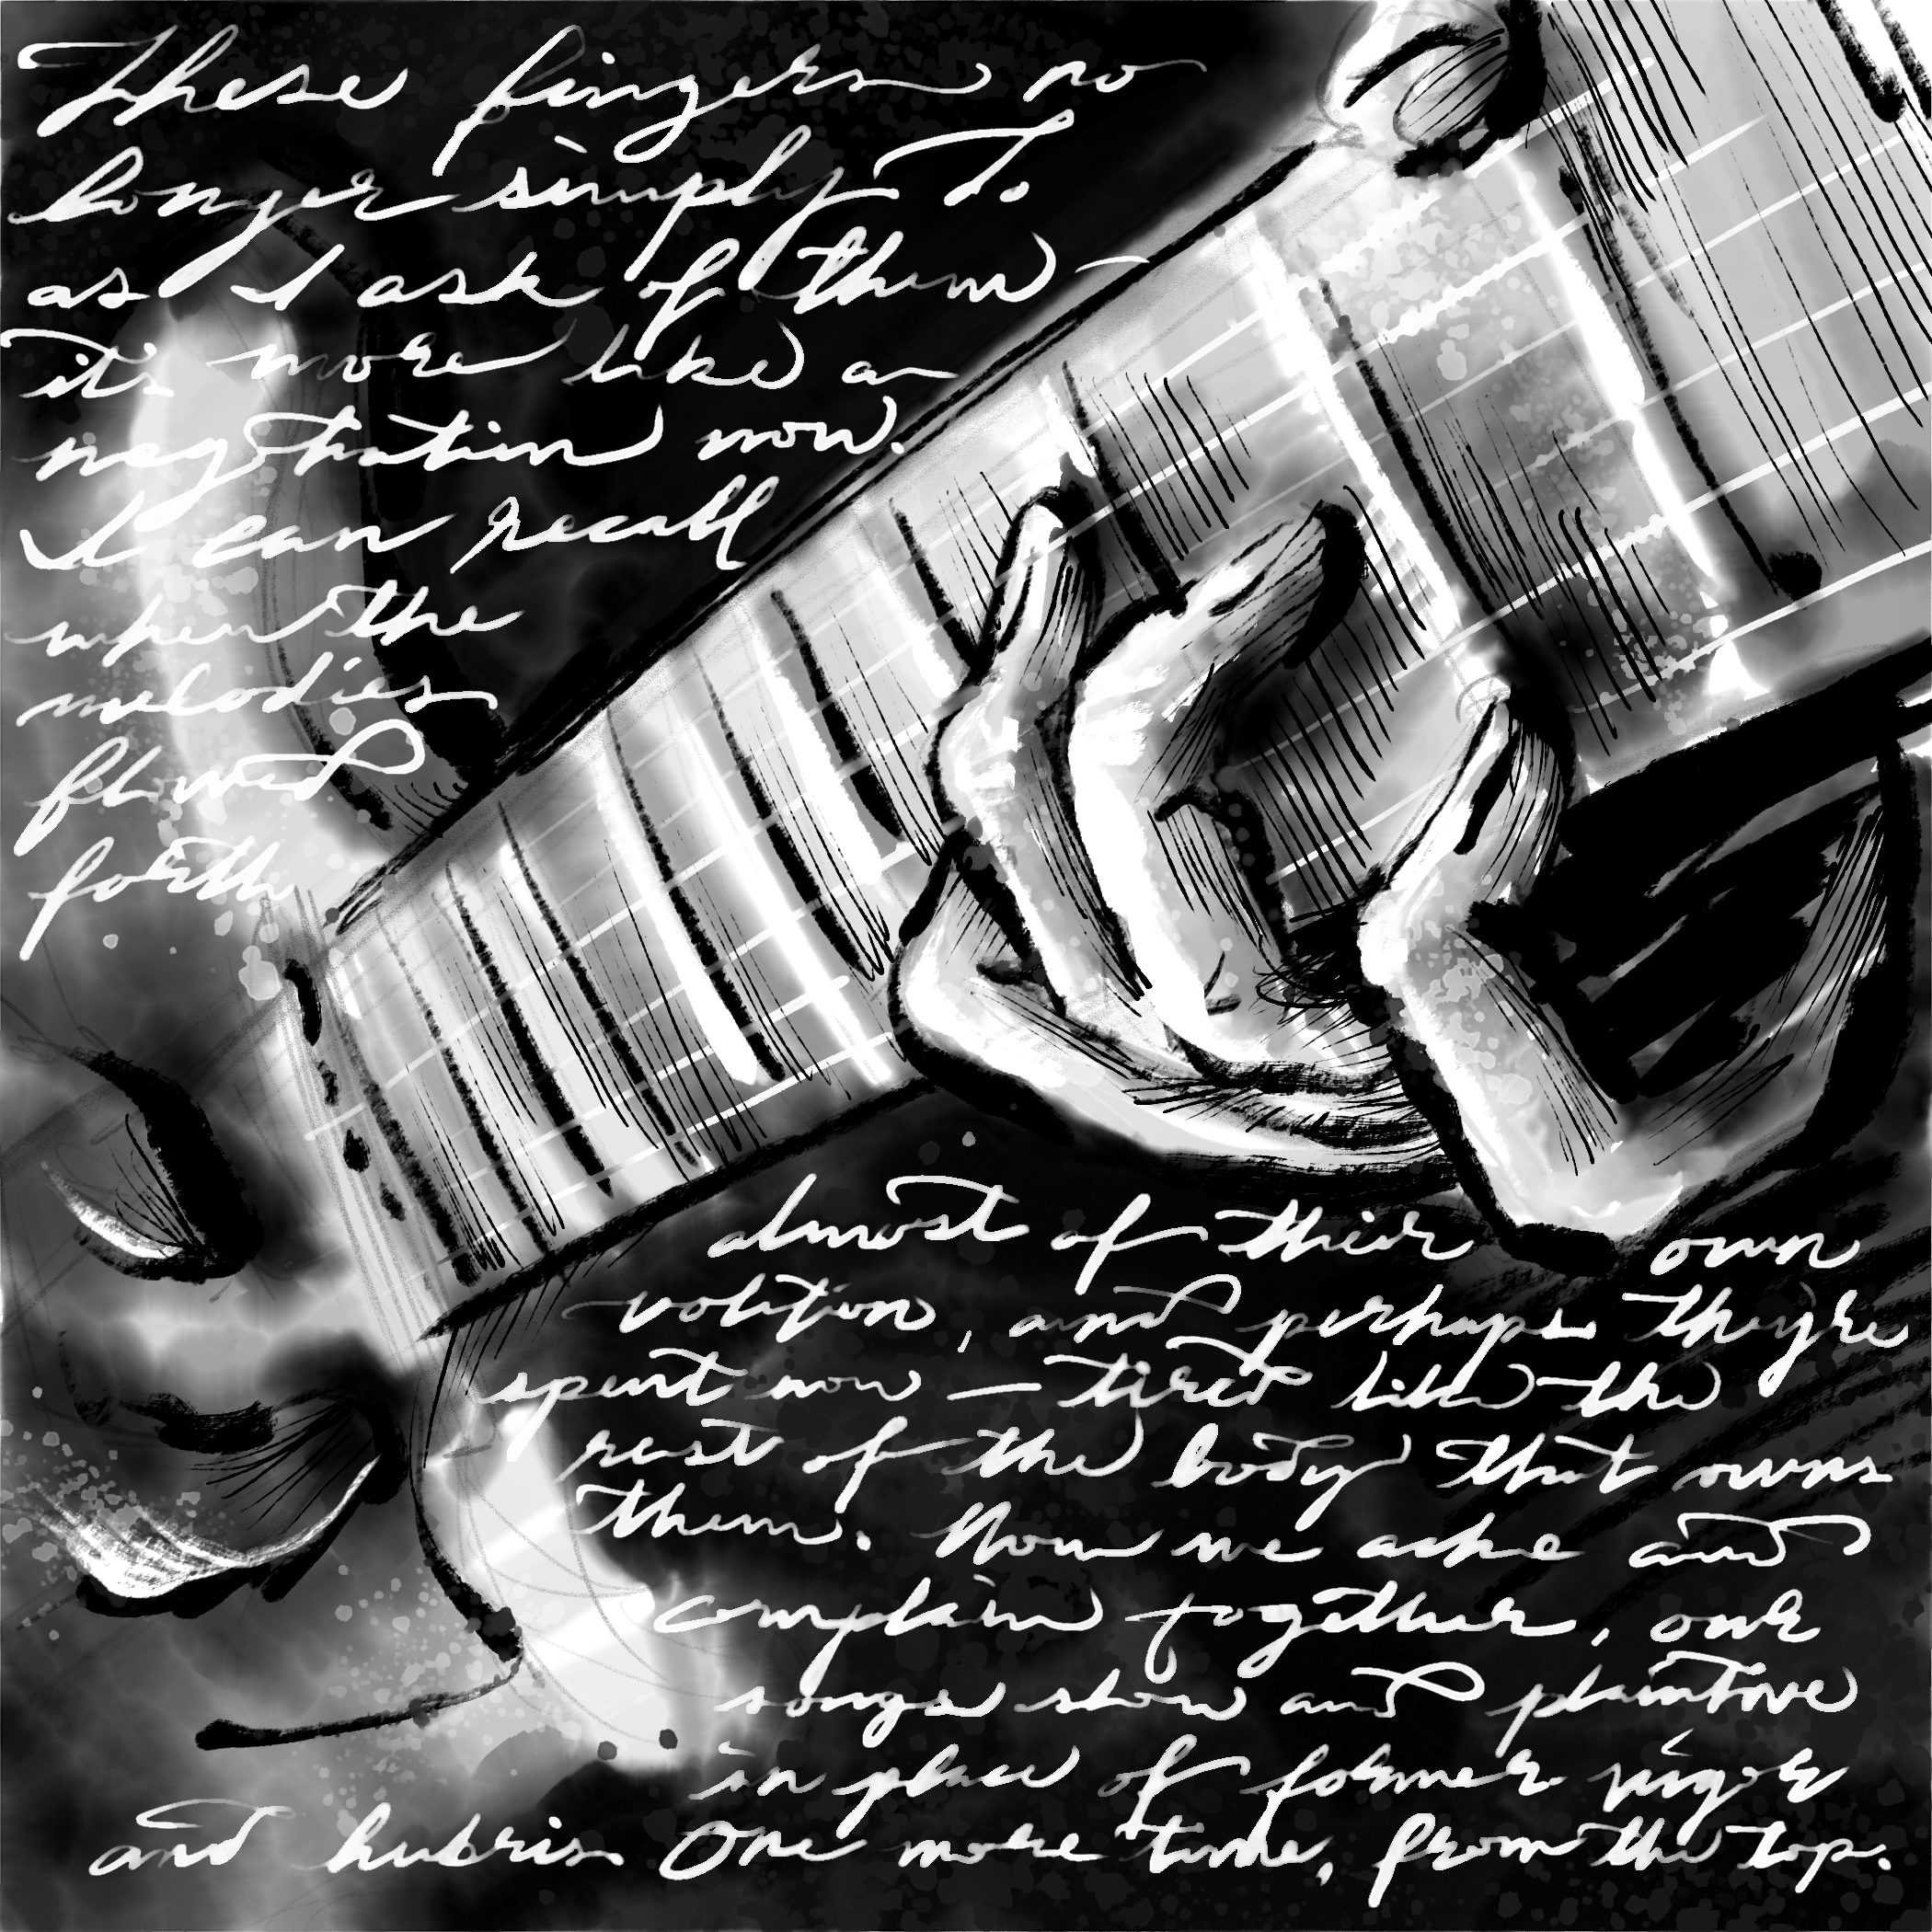 These fingers no
longer simply do
as I ask of them –
it's more like a
negotiation now.
I can recall
when the
melodies
flowed
forth
almost of their own
volition, and perhaps they're
spent now — tired like the
rest of the body that owns
them. Now we ache and
complain together, our
songs slow and plaintive
in place of former vigor
and hubris. One more time, from the top.